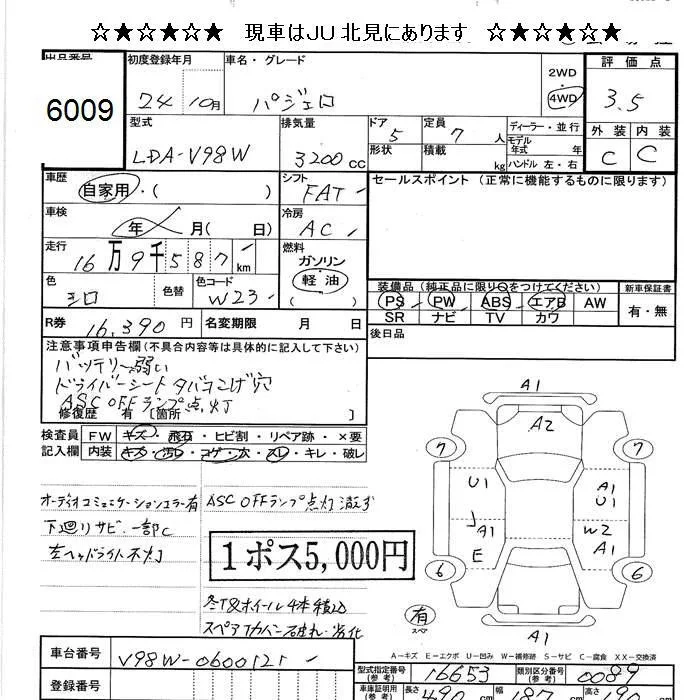 ☆★☆★☆★ 現車はJU北見にあります ☆★☆★☆★
出品番号 初度登録年月 車名・グレード 2WD 評価点
6009 24 10月 パジェロ 4WD 3.5
型式 排気量 ドア 5 定員 7人 ディーラー・並行 外装 内装
LDA-V98W 3200cc 形状 積載 kg モデル年式 年 C C
ハンドル 左・右
車歴 自家用・( ) シフト FAT セールスポイント(正常に機能するものに限ります)
車検 年 月( 日) 冷房 AC
走行 16万9千587km 燃料 ガソリン 軽油 ( )
色 シロ 色替 色コード W23
装備品(純正品に限り○をつけてください) 新車保証書
PS PW ABS エアB AW 有・無
SR ナビ TV カワ
R券 16,390円 名変期限 月 日 後日品
注意事項申告欄(不具合内容等は具体的に記入して下さい)
バッテリー弱い
ドライバーシートタバコこげ穴
ASC OFFランプ点灯
修復歴 有 〔箇所 〕
検査員 FW キズ・飛石・ヒビ割・リペア跡・×要
記入欄 内装 キズ・汚レ・コゲ・穴・スレ・キレ・破レ
オーディオコミュニケーションエラー有
下廻りサビ、一部C
左ヘッドライト不灯
ASC OFFランプ点灯消えず
1ポス5,000円
冬T&ホイール4本積込
スペアTカバー破れ・劣化
A1
A2
7 7
U1 A1
U1
A1 W2
E A1
6 6
有
スペア
A1
A−キズ E−エクボ U−凹み W−補修跡 S−サビ C−腐食 XX−交換済
車台番号 V98W-0600121
登録番号
型式指定番号(参考) 16653 類別区分番号(参考) 0089
車庫証明用(参考) 長さ 490 幅 187 高さ